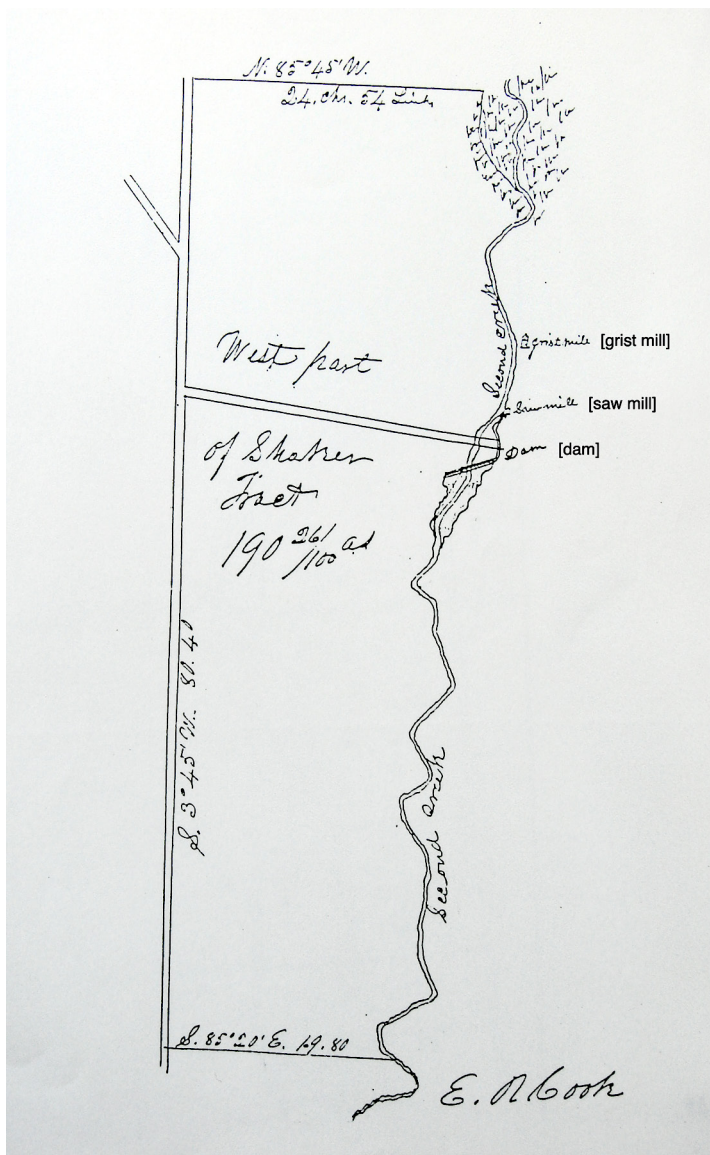 N. 85° 45' W.
24. chs. 54 Links
Second creek
grist mill [grist mill]
West part
Saw mill [saw mill]
Dam [dam]
of Shaker
Tract
190 26/100 as
S. 3° 45' W. 80.40
Second creek
S. 85° 20' E. 19.80
E. R Cook